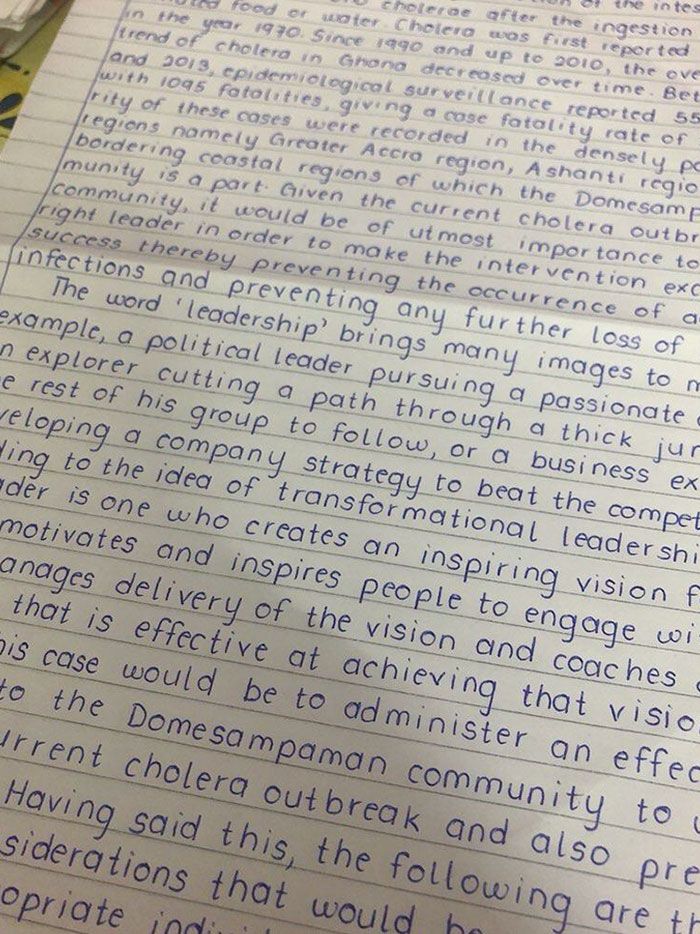 food or water. Cholera was first reported
in the year 1970. Since 1990 and up to 2010, the
trend of cholera in Ghana decreased over time.
and 2013, epidemiological surveillance reported 55
with 1095 fatalities, giving a case fatality rate of
rity of these cases were recorded in the densely
regions namely Greater Accra region, Ashanti regio
bordering coastal regions of which the Domesam
munity is a part. Given the current cholera outbr
community, it would be of utmost importance to
right leader in order to make the intervention exc
success thereby preventing the occurrence of
infections and preventing any further loss of
The word 'leadership' brings many images to m
example, a political leader pursuing a passionate
n explorer cutting a path through a thick jun
e rest of his group to follow, or a business ex
veloping a company strategy to beat the compet
ding to the idea of transformational leadershi
der is one who creates an inspiring vision f
motivates and inspires people to engage wi
anages delivery of the vision and coaches
that is effective at achieving that visio
his case would be to administer an effec
to the Domesampaman community to
urrent cholera outbreak and also pre
Having said this, the following are th
siderations that would be
opriate